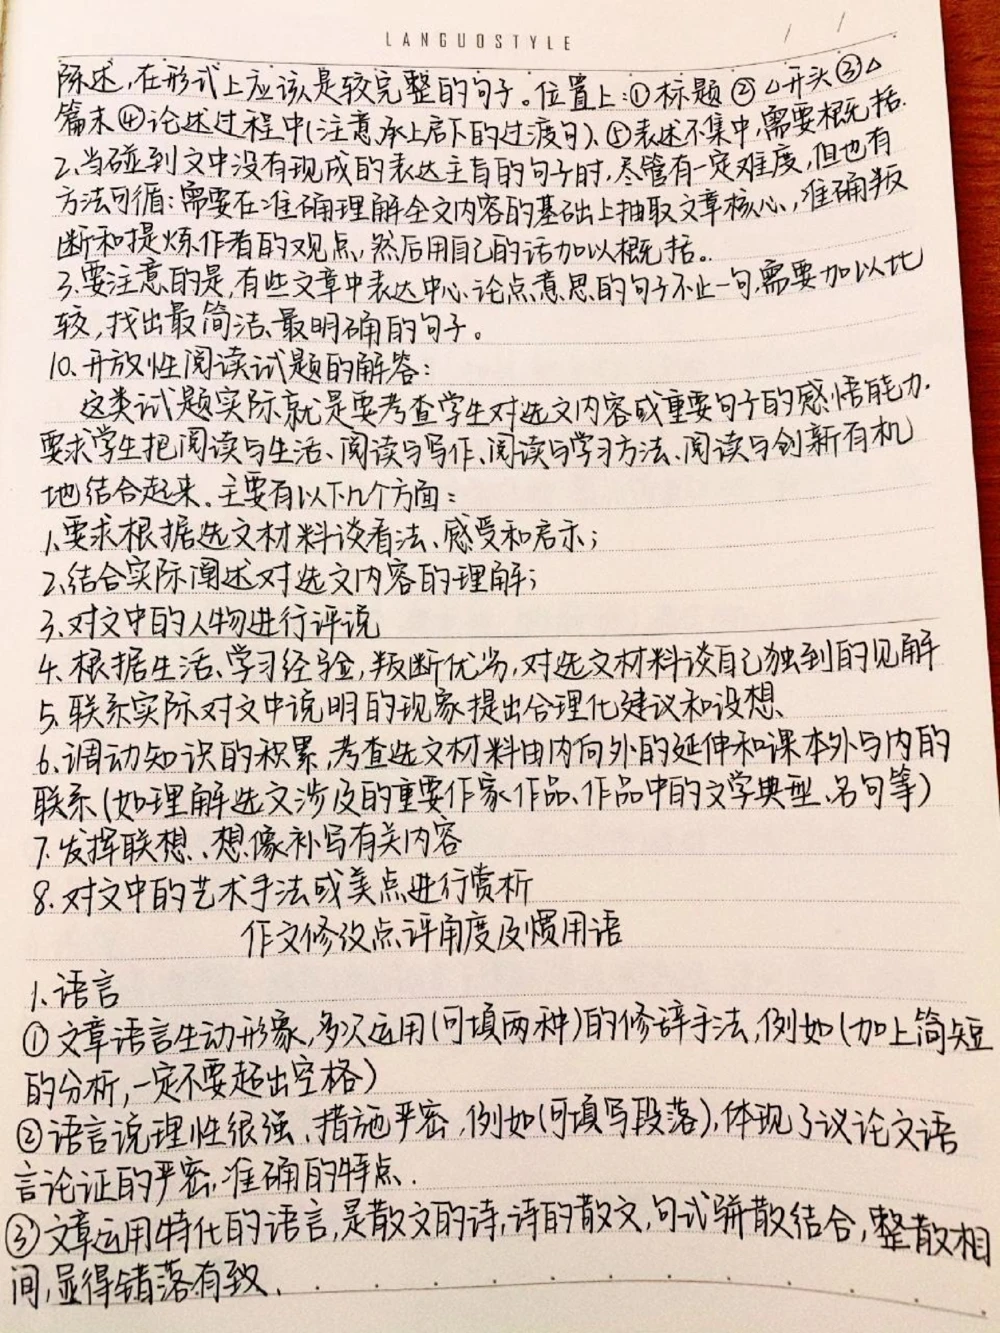 LANGUOSTYLE
陈述,在形式上应该是较完整的句子。位置上:①标题②△开头③△
篇末④论述过程中(注意承上启下的过渡句)、⑤表述不集中,需要概括.
2.当碰到文中没有现成的表达主旨的句子时,尽管有一定难度,但也有
方法可循:需要在准确理解全文内容的基础上抽取文章核心,准确判
断和提炼作者的观点,然后用自己的话加以概括。
3.要注意的是,有些文章中表达中心论点意思的句子不止一句,需要加以比
较,找出最简洁、最明确的句子。
10.开放性阅读试题的解答:
这类试题实际就是要考查学生对选文内容或重要句子的感悟能力.
要求学生把阅读与生活、阅读与写作、阅读与学习方法、阅读与创新有机
地结合起来.主要有以下几个方面:
1.要求根据选文材料谈看法、感受和启示;
2.结合实际阐述对选文内容的理解;
3.对文中的人物进行评说
4.根据生活、学习经验,判断优劣,对选文材料谈自己独到的见解
5.联系实际对文中说明的现象提出合理化建议和设想、
6.调动知识的积累,考查选文材料由内向外的延伸和课本外与内的
联系(如理解选文涉及的重要作家作品、作品中的文学典型、名句等)
7.发挥联想、想像补写有关内容
8.对文中的艺术手法或美点进行赏析
作文修改点评角度及惯用语
1.语言
①文章语言生动形象,多次运用(可填两种)的修辞手法,例如(加上简短
的分析,一定不要超出空格)
②语言说理性很强、措施严密,例如(可填写段落),体现了议论文语
言论证的严密,准确的特点.
③文章运用特化的语言,是散文的诗,诗的散文,句式骈散结合,整散相
间,显得错落有致.